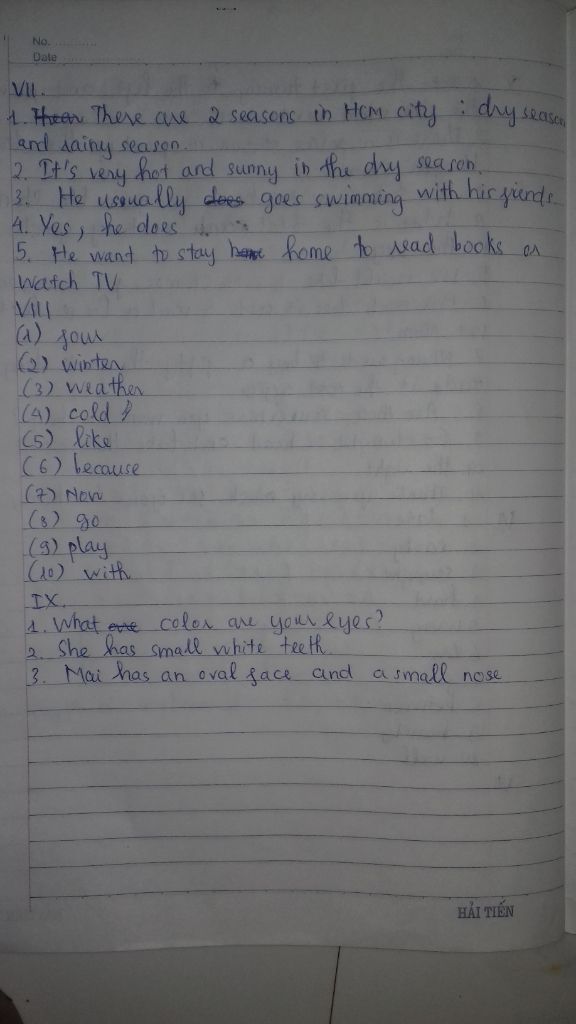 No. ............
Date
VII.
1. There are 2 seasons in HCM city : dry season
and rainy season.
2. It's very hot and sunny in the dry season.
3. He usually does goes swimming with his friends.
4. Yes, he does
5. He want to stay home to read books or
Watch TV
VIII
(1) four
(2) winter
(3) weather
(4) cold
(5) like
(6) because
(7) Now
(8) go
(9) play
(10) with
IX.
1. What are color are your eyes?
2. She has small white teeth
3. Mai has an oval face and a small nose
HẢI TIẾN